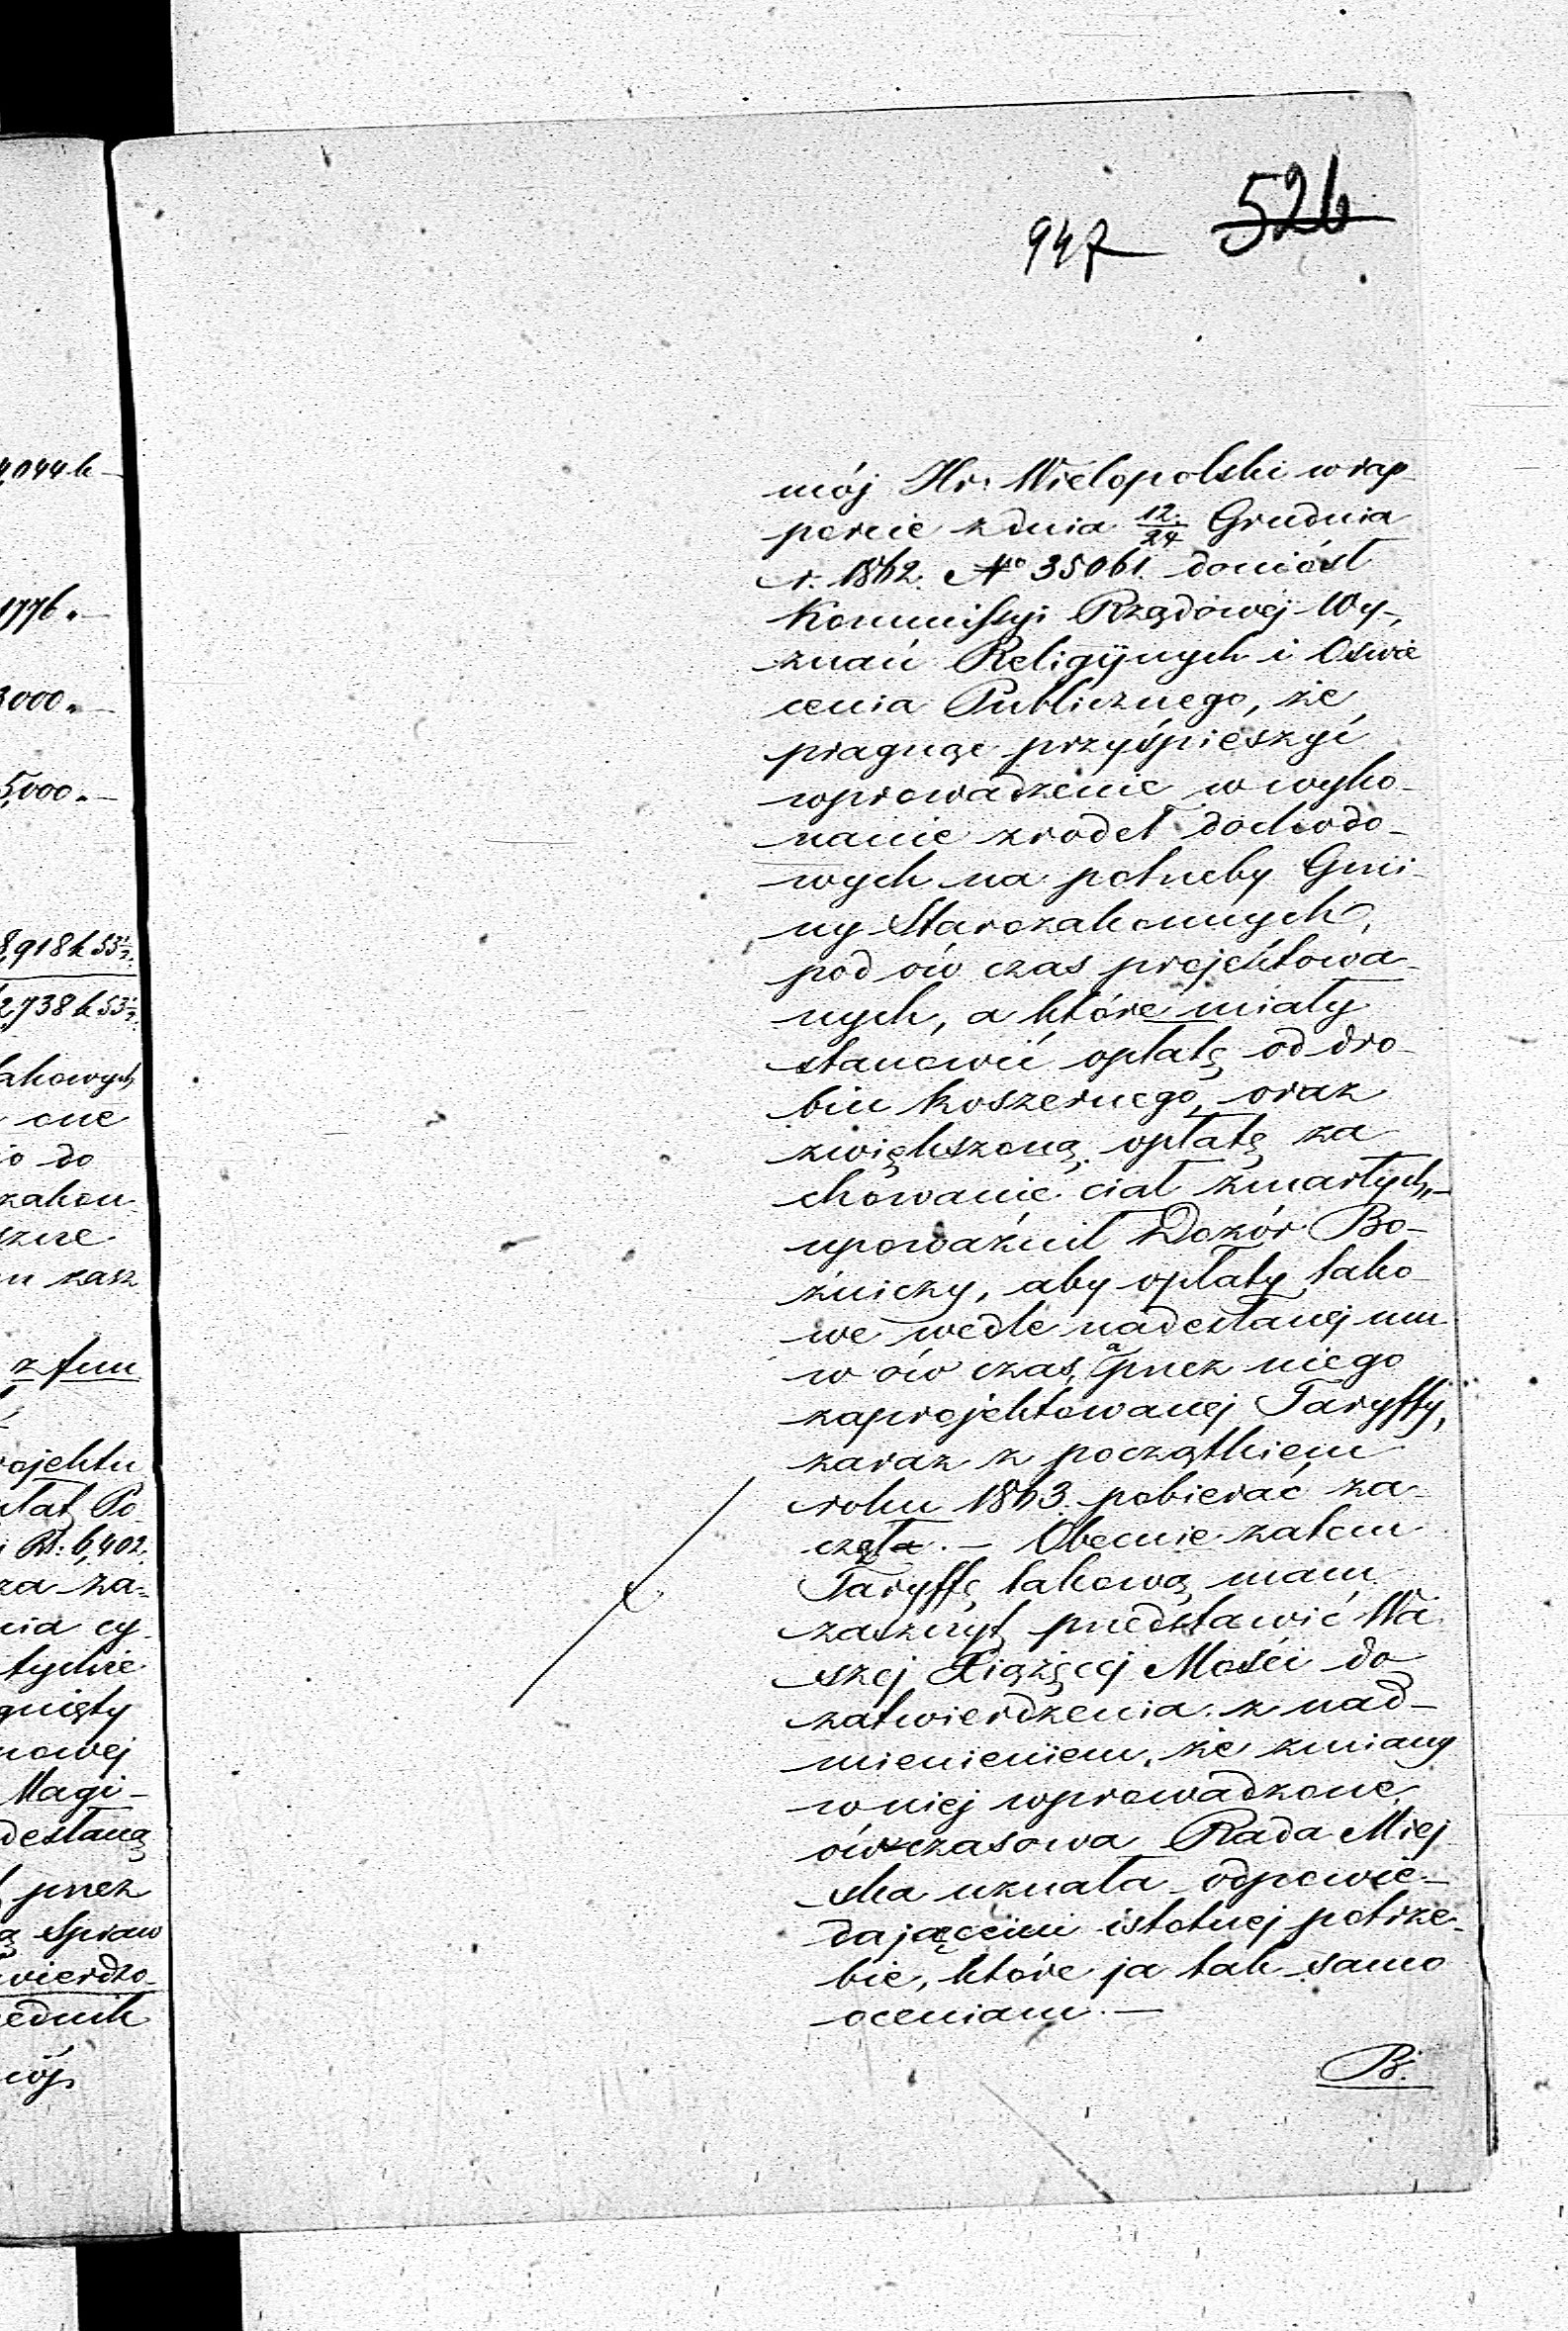 947 526
4,044 k
1776.
3000.
5,000.
8,918 k 53 1/2.
2,738 k 53 1/2.
akowych
one
io do
zakon
szne
m zasz
z fun
rojektu
płat Po
i Rs: 6,402.
za za=
nia cy
tychże
gnięty
nowej
Magi-
desłaną
przez
ą Spraw
wierdzo-
ednik
mój
mój Hr: Wielopolski w rap
porcie z dnia 12/24 Grudnia
r. 1862. No 35061. doniósł
Kommissyi Rządowej Wy-
znań Religijnych i Oswie
cenia Publicznego, że
pragnąc przyśpieszyć
wprowadzenie w wyko-
nanie zrodeł dochodo-
wych na potrzeby Gmi-
ny Starozakonnych,
pod ów czas projektowa-
nych, a które miały
stanowić opłatę od dro-
biu koszernego, oraz
zwiększoną opłatę za
chowanie ciał zmarłych,-
upoważnił Dozór Bo-
żniczy, aby opłaty tako-
we wedle nadesłanej mu
w ów czas, a przez niego
zaprojektowanej Taryffy,
zaraz z początkiem
roku 1863. pobierać za-
częła.- Obecnie zatem
Taryffę takową mam
zaszczyt przedstawić Wa
szej Xiążęcej Mości do
zatwierdzenia z nad-
mienieniem, że zmiany
w niej wprowadzone
ówczasowa Rada Miej
ska uznała odpowie-
dającemi istotnej potrze-
bie, które ja tak samo
oceniam.-